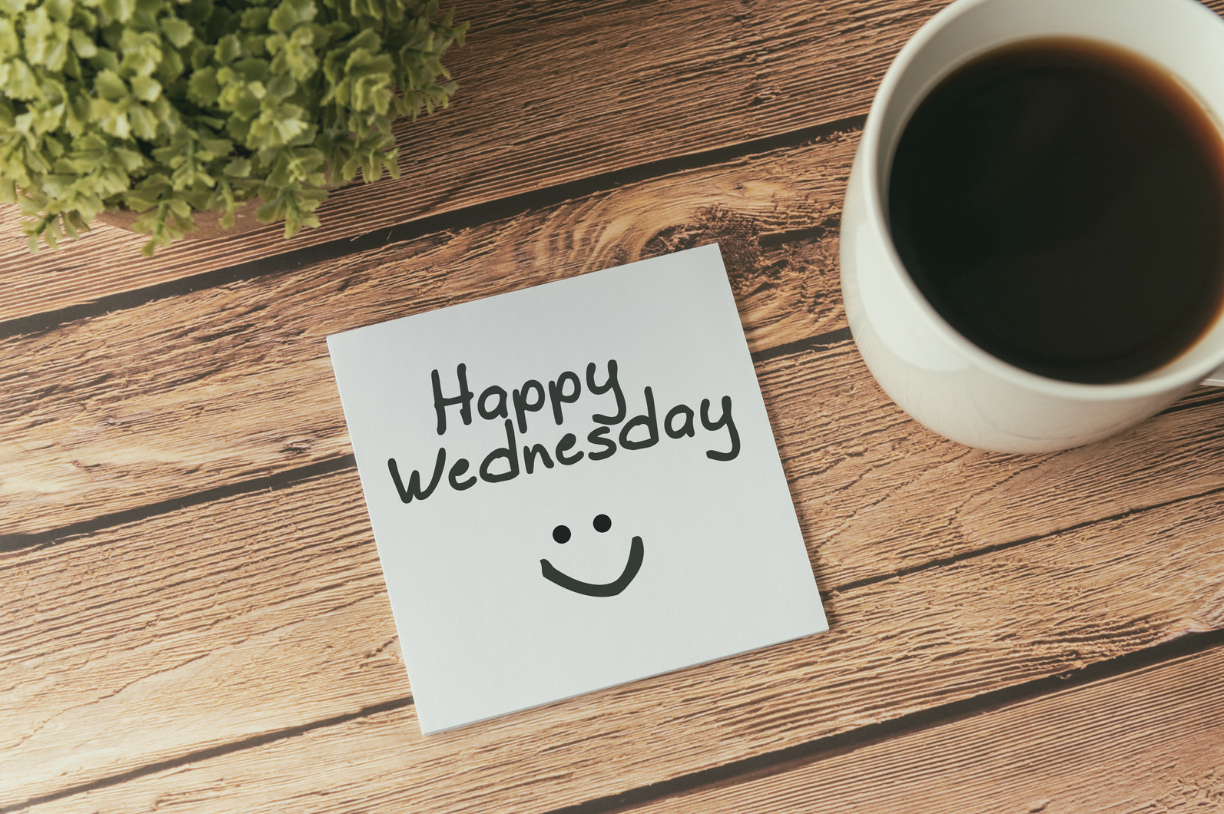 Happy
Wednesday